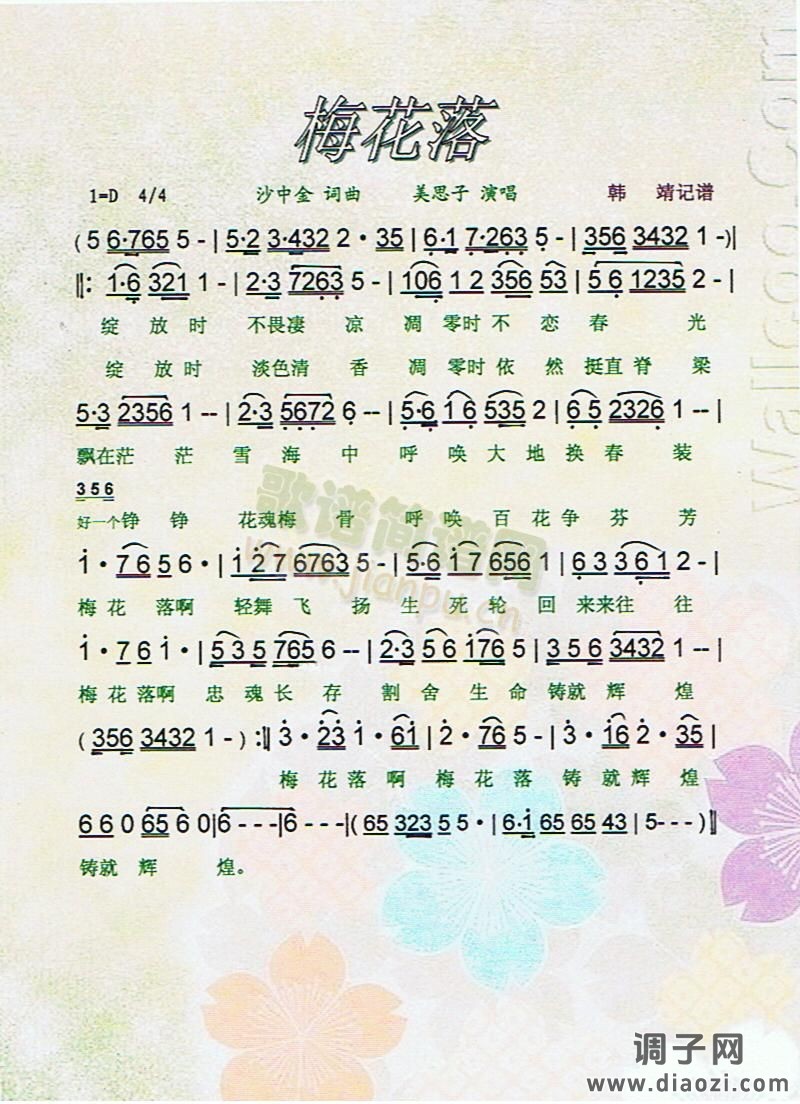 梅花落
1=D 4/4 沙中金 词曲 美思子 演唱 韩 靖记谱
(5 6·765 5 - | 5·2 3·432 2 · 35 | 6·1 7·263 5 - | 356 3432 1 -)|
‖: 1·6 321 1 - | 2·3 7263 5 - | 106 1 2 356 53 | 5 6 1235 2 - |
绽 放 时 不畏凄 凉 凋 零时 不 恋 春 光
绽 放 时 淡色清 香 凋 零时 依 然 挺直 脊 梁
5·3 2356 1 -- | 2·3 5672 6 -- | 5·6 1 6 535 2 | 6 5 2326 1 -- |
飘在茫 茫 雪 海 中 呼 唤 大 地 换 春 装
3 5 6
好一个铮 铮 花魂梅 骨 呼 唤 百 花 争 芬 芳
1 · 7 6 5 6 · | 1 2 7 6763 5 - | 5·6 1 7 656 1 | 6 3 3 6 1 2 - |
梅 花 落啊 轻舞 飞 扬 生 死 轮 回 来来往 往
1 · 7 6 1 · | 5 3 5 765 6 -- | 2·3 5 6 176 5 | 3 5 6 3432 1 -- |
梅 花 落啊 忠 魂 长 存 割 舍 生 命 铸就 辉 煌
(356 3432 1 - ) :‖ 3 · 23 1 · 61 | 2 · 76 5 - | 3 · 16 2 · 35 |
梅 花 落 啊 梅 花 落 铸 就辉 煌
6 6 0 65 6 0|6 - - -|6 - - -|( 65 323 5 5 · | 6·1 65 65 43 | 5- - - )‖
铸就 辉 煌。
歌谱简谱网
www.jianpu.cn
walleoo.com
调子网
www.diaozi.com